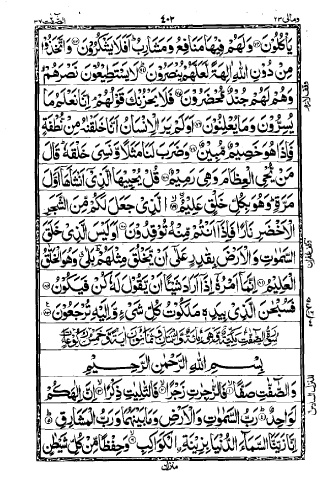 الصّٰفّٰت ٣٧ ٤٠٢ ومالی ٢٣
يَاْكُلُوْنَ۝ وَلَهُمْ فِيْهَا مَنَافِعُ وَمَشَارِبُ ؕ اَفَلَا يَشْكُرُوْنَ۝ وَاتَّخَذُوْا
مِنْ دُوْنِ اللّٰهِ اٰلِهَةً لَّعَلَّهُمْ يُنْصَرُوْنَ۝ لَا يَسْتَطِيْعُوْنَ نَصْرَهُمْ
وَهُمْ لَهُمْ جُنْدٌ مُّحْضَرُوْنَ۝ فَلَا يَحْزُنْكَ قَوْلُهُمْ ۘ اِنَّا نَعْلَمُ مَا
يُسِرُّوْنَ وَمَا يُعْلِنُوْنَ۝ اَوَلَمْ يَرَ الْاِنْسَانُ اَنَّا خَلَقْنٰهُ مِنْ نُّطْفَةٍ
فَاِذَا هُوَ خَصِيْمٌ مُّبِيْنٌ۝ وَضَرَبَ لَنَا مَثَلًا وَّنَسِيَ خَلْقَهٗ ؕ قَالَ
مَنْ يُّحْيِ الْعِظَامَ وَهِيَ رَمِيْمٌ۝ قُلْ يُحْيِيْهَا الَّذِيْٓ اَنْشَاَهَآ اَوَّلَ
مَرَّةٍ ؕ وَهُوَ بِكُلِّ خَلْقٍ عَلِيْمُ۝ ۨالَّذِيْ جَعَلَ لَكُمْ مِّنَ الشَّجَرِ
الْاَخْضَرِ نَارًا فَاِذَآ اَنْتُمْ مِّنْهُ تُوْقِدُوْنَ۝ اَوَلَيْسَ الَّذِيْ خَلَقَ
السَّمٰوٰتِ وَالْاَرْضَ بِقٰدِرٍ عَلٰٓى اَنْ يَّخْلُقَ مِثْلَهُمْ ؕ بَلٰى ۗ وَهُوَ الْخَلّٰقُ
الْعَلِيْمُ۝ اِنَّمَآ اَمْرُهٗٓ اِذَآ اَرَادَ شَيْـًٔا اَنْ يَّقُوْلَ لَهٗ كُنْ فَيَكُوْنُ۝
فَسُبْحٰنَ الَّذِيْ بِيَدِهٖ مَلَكُوْتُ كُلِّ شَيْءٍ وَّاِلَيْهِ تُرْجَعُوْنَ۝
بِسْمِ اللّٰهِ الرَّحْمٰنِ الرَّحِيْمِ
وَالصّٰٓفّٰتِ صَفًّا۝ فَالزّٰجِرٰتِ زَجْرًا۝ فَالتّٰلِيٰتِ ذِكْرًا۝ اِنَّ اِلٰهَكُمْ
لَوَاحِدٌ۝ رَبُّ السَّمٰوٰتِ وَالْاَرْضِ وَمَا بَيْنَهُمَا وَرَبُّ الْمَشَارِقِ۝
اِنَّا زَيَّنَّا السَّمَآءَ الدُّنْيَا بِزِيْنَةِ ۨالْكَوَاكِبِ۝ وَحِفْظًا مِّنْ كُلِّ شَيْطٰنٍ
منزل